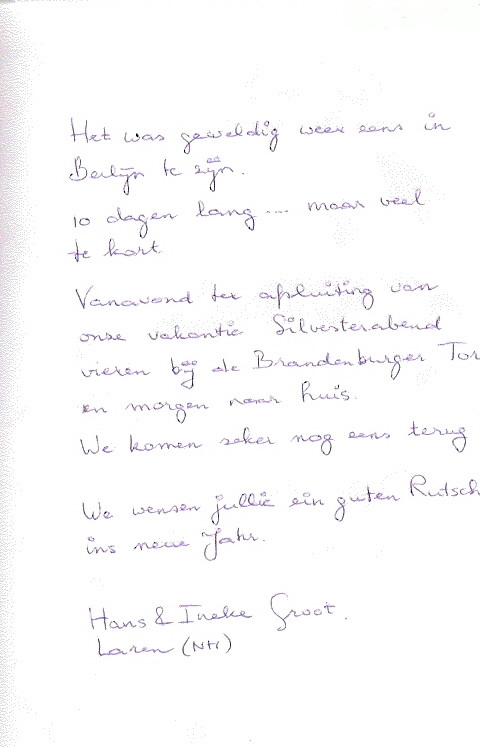 Het was geweldig weer eens in
Berlijn te zijn.
10 dagen lang.... maar veel
te kort.
Vanavond ter afsluiting van
onze vakantie Silvesterabend
vieren bij de Brandenburger Tor
en morgen naar huis.
We komen zeker nog eens terug
We wensen jullie ein guten Rutsch
ins neue Jahr.
Hans & Ineke Groot.
Laren (NH)